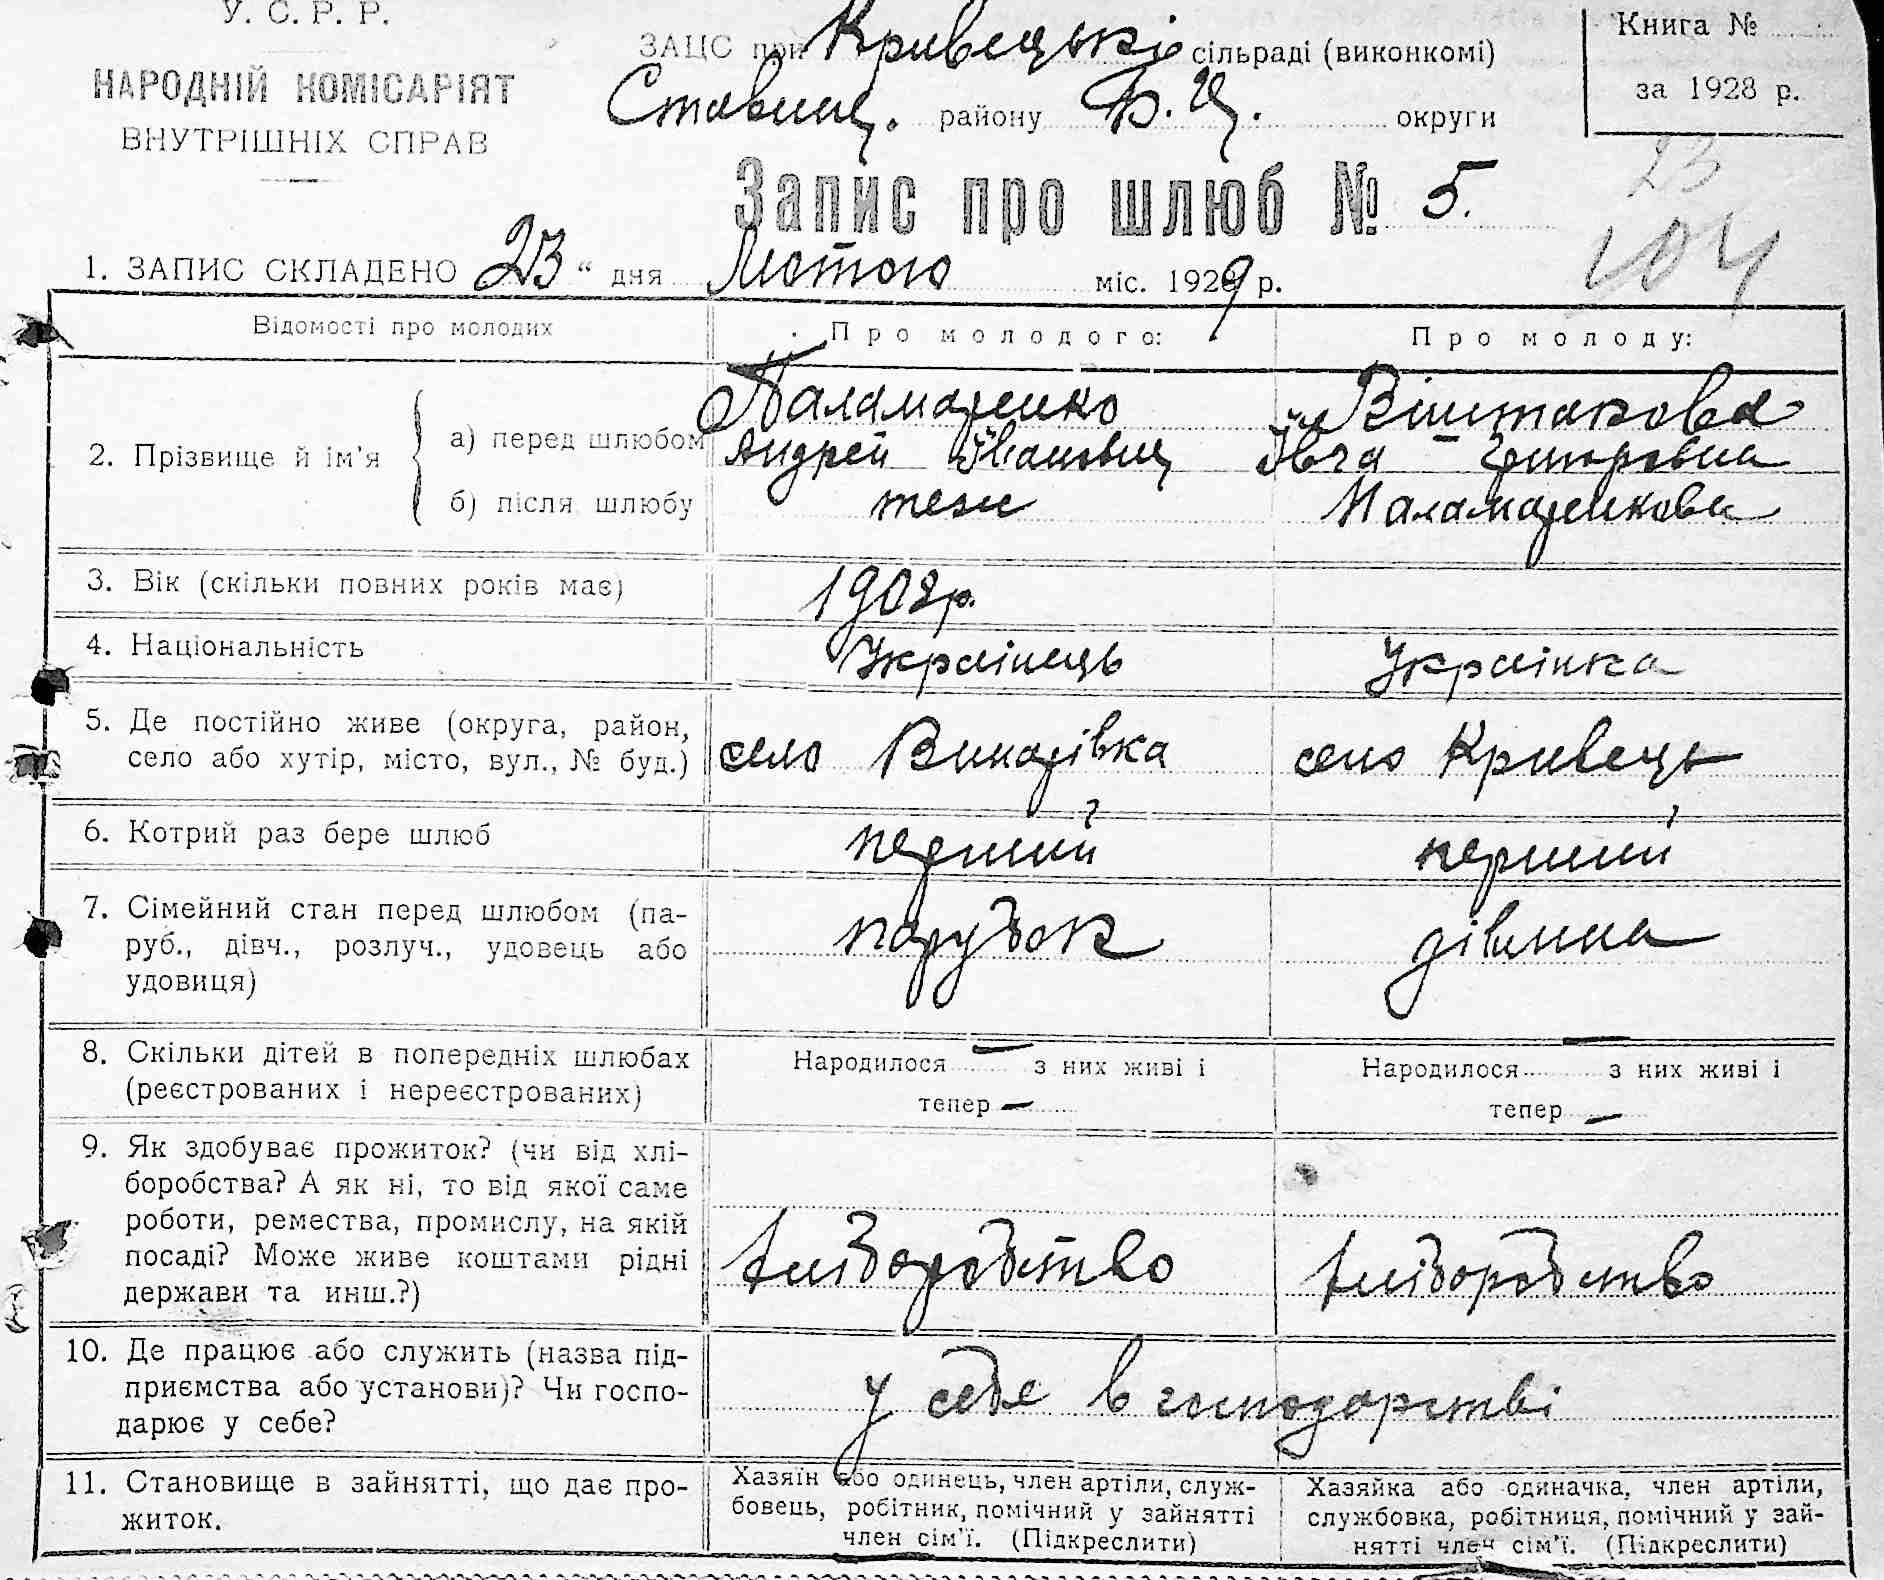 У. С. Р. Р.
НАРОДНІЙ КОМІСАРІЯТ
ВНУТРІШНІХ СПРАВ
ЗАЦС при Кривецькій сільраді (виконкомі)
Ставищ. району Б.Ц. округи
Книга №
за 1928 р.
Запис про шлюб № 5.
23
104
1. ЗАПИС СКЛАДЕНО 23 “ дня Лютого міс. 1929 р.
Відомості про молодих
Про молодого:
Про молоду:
2. Прізвище й ім’я
а) перед шлюбом
Паламаренко
Андрей Іванович
Віштакова
Івга Григоровна
б) після шлюбу
теж
Паламаренкова
3. Вік (скільки повних років має)
1908р.
4. Національність
Українець
Українка
5. Де постійно живе (округа, район,
село або хутір, місто, вул., № буд.)
село Винарівка
село Кривець
6. Котрий раз бере шлюб
перший
перший
7. Сімейний стан перед шлюбом (па-
руб., дівч., розлуч., удовець або
удовиця)
парубок
дівчина
8. Скільки дітей в попередніх шлюбах
(реєстрованих і нереєстрованих)
Народилося — з них живі і
тепер —
Народилося — з них живі і
тепер —
9. Як здобуває прожиток? (чи від хлі-
боробства? А як ні, то від якої саме
роботи, ремества, промислу, на якій
посаді? Може живе коштами рідні
держави та инш.?)
хліборобство
хліборобство
10. Де працює або служить (назва під-
приємства або установи)? Чи госпо-
дарює у себе?
у себе в господарстві
11. Становище в зайнятті, що дає про-
житок.
Хазяїн або одинець, член артіли, служ-
бовець, робітник, помічний у зайнятті
член сім’ї. (Підкреслити)
Хазяйка або одиначка, член артіли,
службовка, робітниця, помічний у зай-
нятті член сім’ї. (Підкреслити)